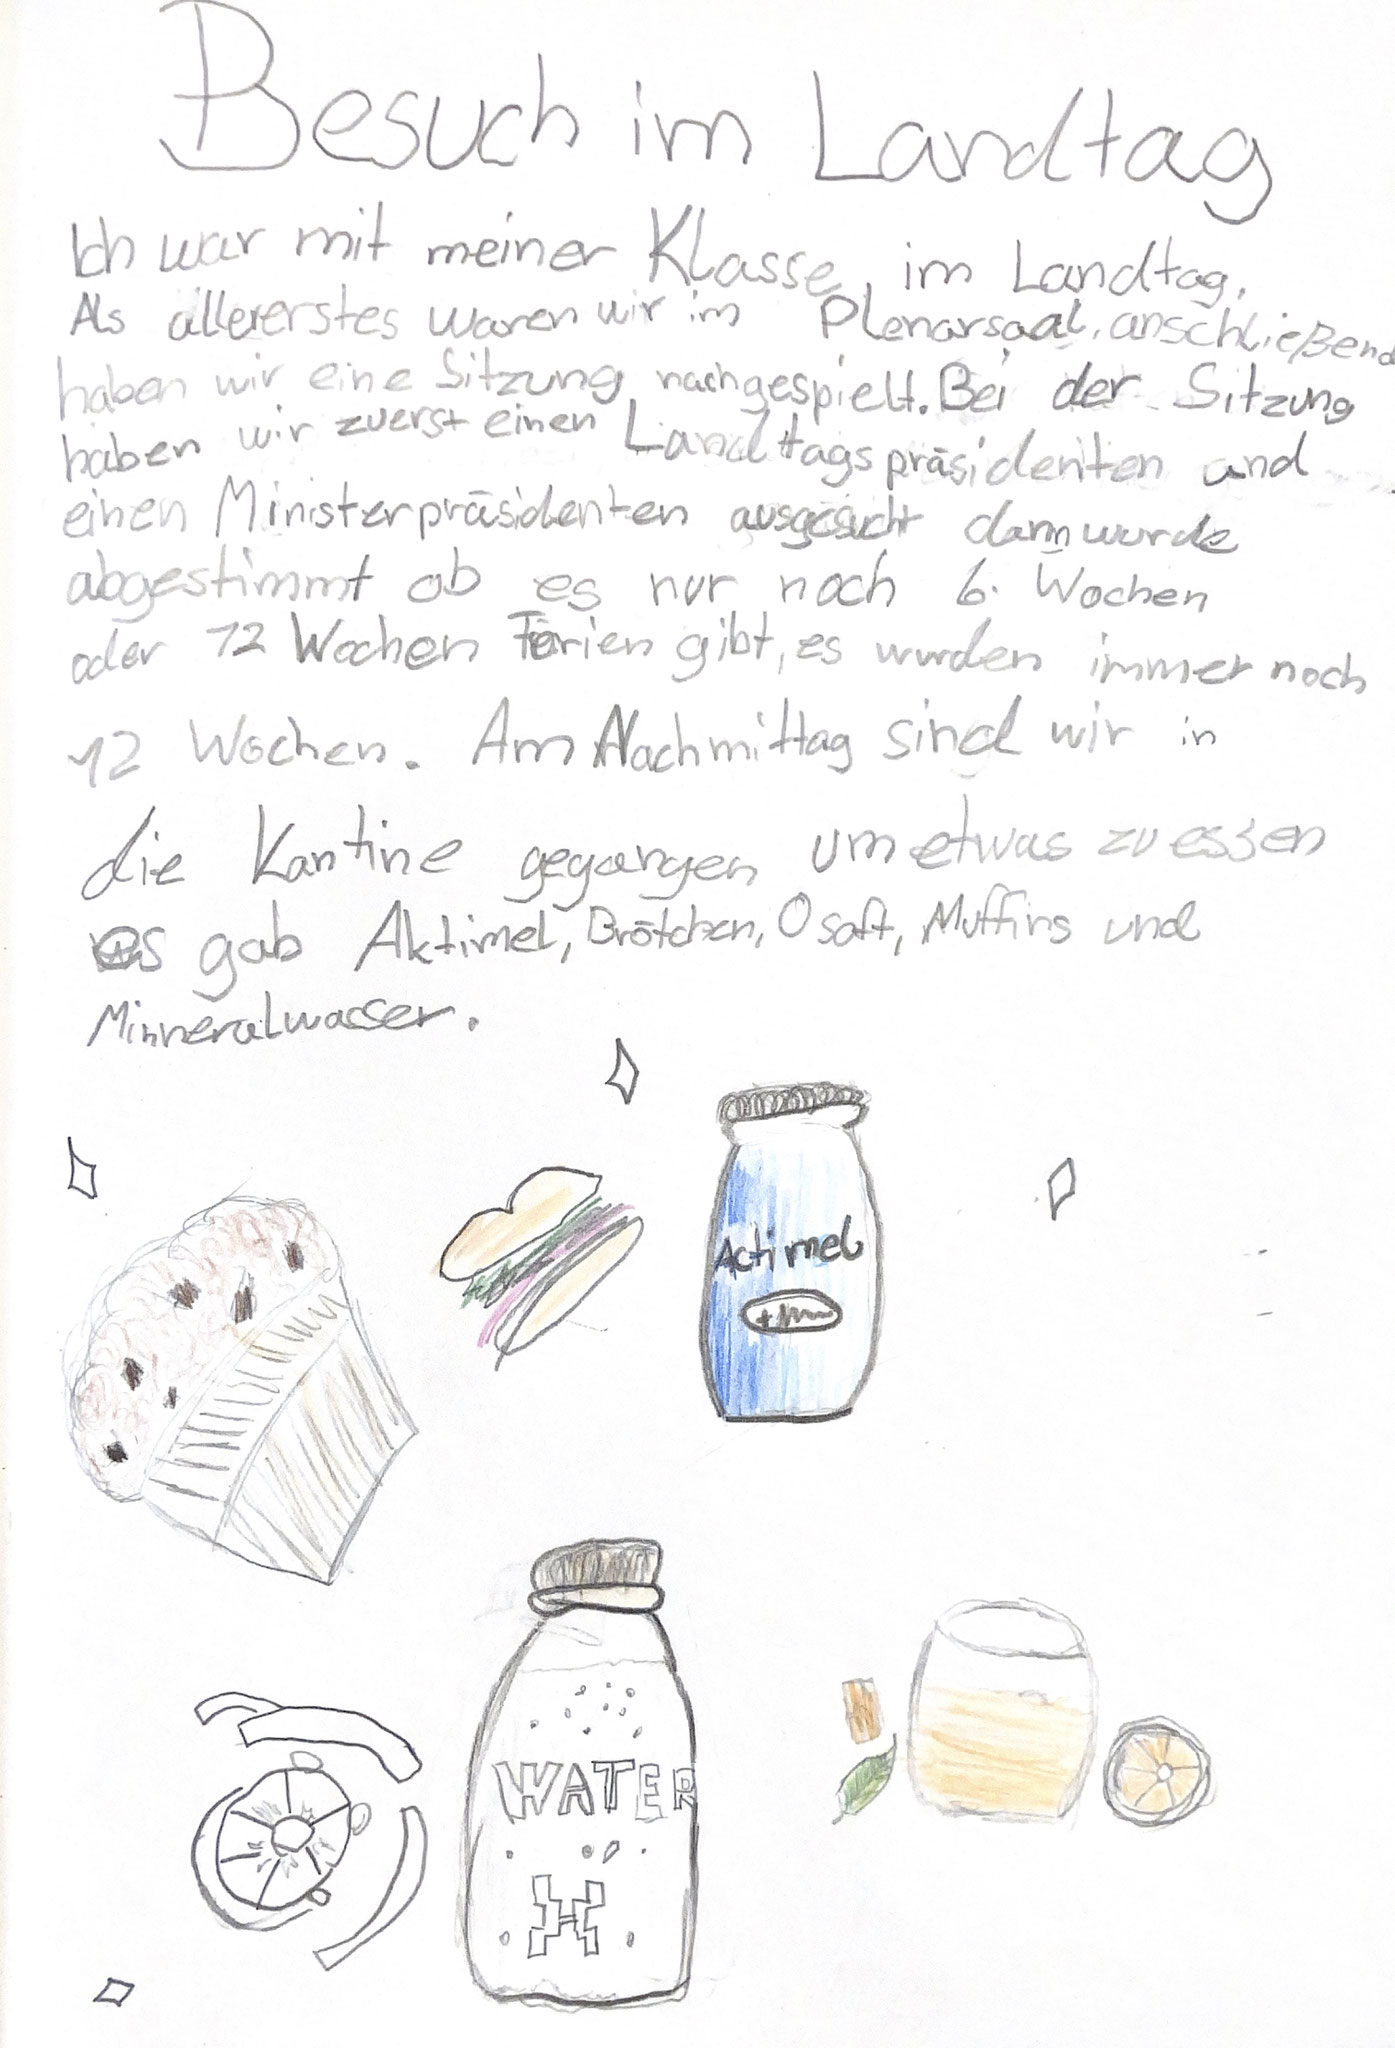 Besuch im Landtag
Ich war mit meiner Klasse im Landtag.
Als allererstes waren wir im Plenarsaal, anschließend
haben wir eine Sitzung nachgespielt. Bei der Sitzung
haben wir zuerst einen Landtagspräsidenten und
einen Ministerpräsidenten ausgesucht dann wurde
abgestimmt ob es nur noch 6. Wochen
oder 12 Wochen Ferien gibt, es wurden immer noch
12 Wochen. Am Nachmittag sind wir in
die Kantine gegangen um etwas zu essen
es gab Aktimel, Brötchen, O saft, Muffins und
Minneralwasser.
Actimel
WATER